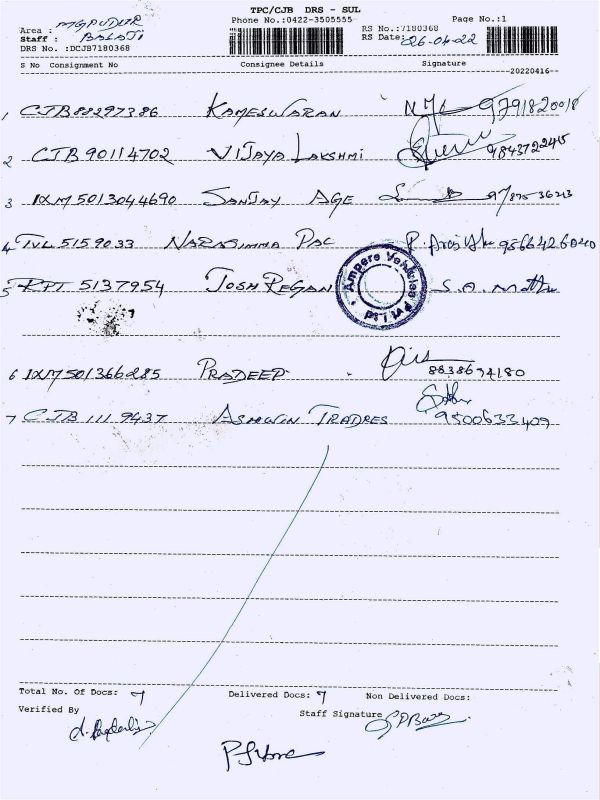 TPC/CJB DRS - SUL
Phone No.:0422-3505555 Page No.:1
Area : MGPUDUR RS No.:7180368
Staff : BALAJI RS Date: 26-04-22
DRS No. :DCJB7180368
S No Consignment No Consignee Details Signature
20220416
1 CJB88297386 KAMESWARAN 9791820018
2 CJB 90114702 VIJAYA LAKSHMI 9843722415
3 IXM 5013044690 SANJAY AGE
4 TVL 5159033 NARASIMMA PAC 9566426040
5 RPT 5137954 JOSH REGAN S.A.
Ampere Vehicles Pvt Ltd
6 IXM501366285 PRADEEP 8838694180
7 CJB 111 9437 ASHWIN TRADRES
9500633409
Total No. Of Docs: 7 Delivered Docs: 7 Non Delivered Docs:
Verified By Staff Signature